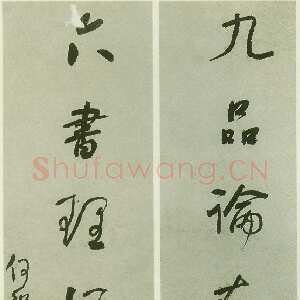 九品論
六書理
何紹
Shufawang.CN